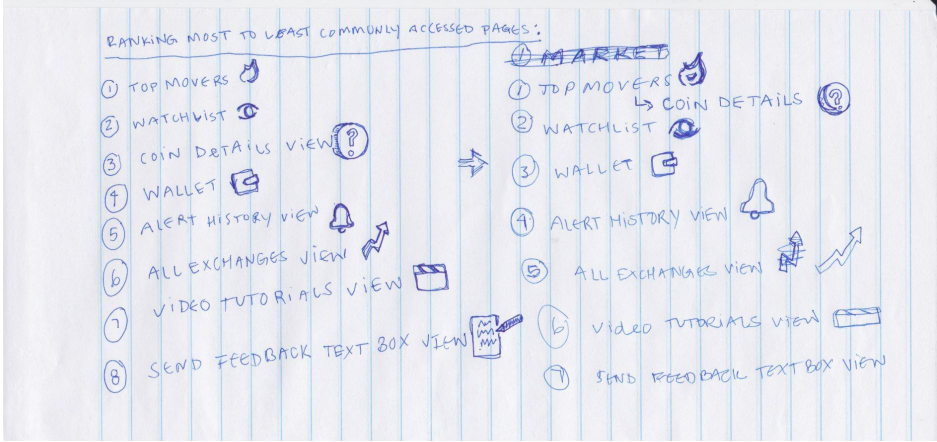 RANKING MOST TO LEAST COMMONLY ACCESSED PAGES:
1 TOP MOVERS
2 WATCHLIST
3 COIN DETAILS VIEW ?
4 WALLET
5 ALERT HISTORY VIEW
6 ALL EXCHANGES VIEW
7 VIDEO TUTORIALS VIEW
8 SEND FEEDBACK TEXT BOX VIEW
1 MARKET
1 TOP MOVERS
↳ COIN DETAILS ?
2 WATCHLIST
3 WALLET
4 ALERT HISTORY VIEW
5 ALL EXCHANGES VIEW
6 VIDEO TUTORIALS VIEW
7 SEND FEEDBACK TEXT BOX VIEW